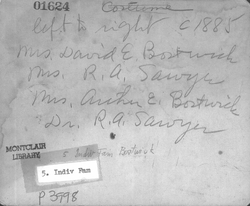 01624
Costume
left to right c1885
Mrs. David E. Bostwick
Mrs. R. A. Sawyer
Mrs. Arthur E. Bostwick
Dr. R. A. Sawyer
MONTCLAIR
LIBRARY
5 Indiv Fam Bostwick
5. Indiv Fam
P3998